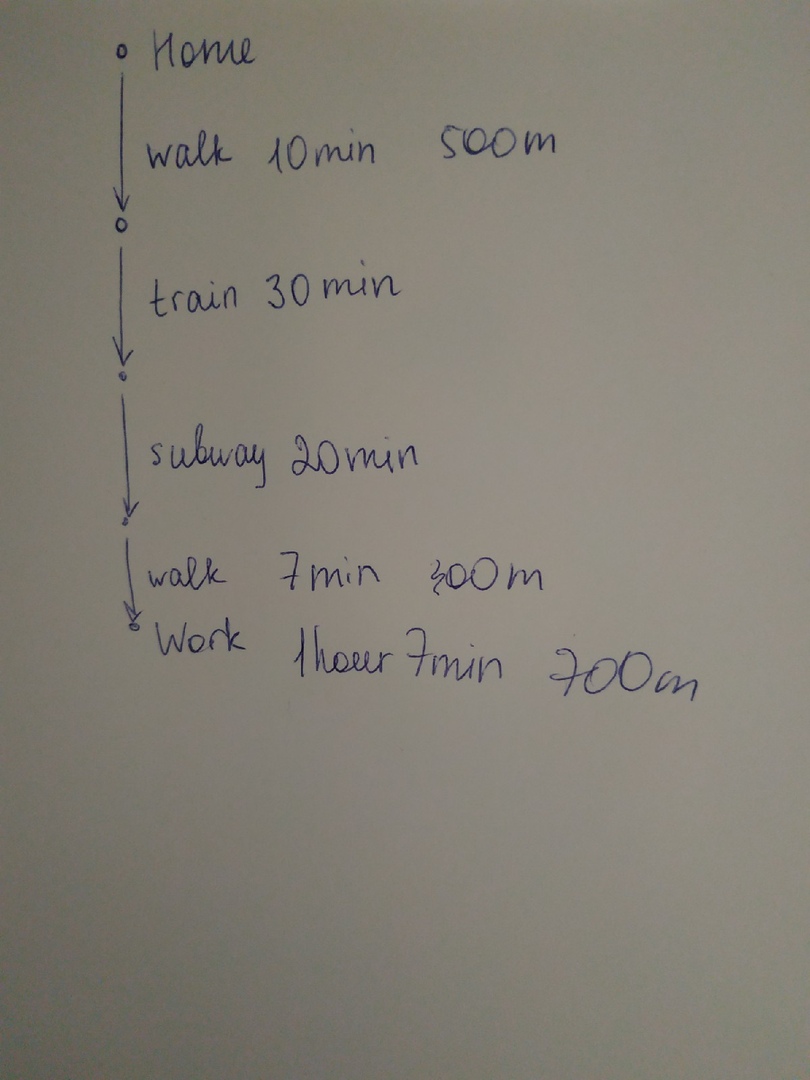 Home
walk 10min 500m
train 30min
subway 20min
walk 7min 300m
Work 1hour 7min 700m